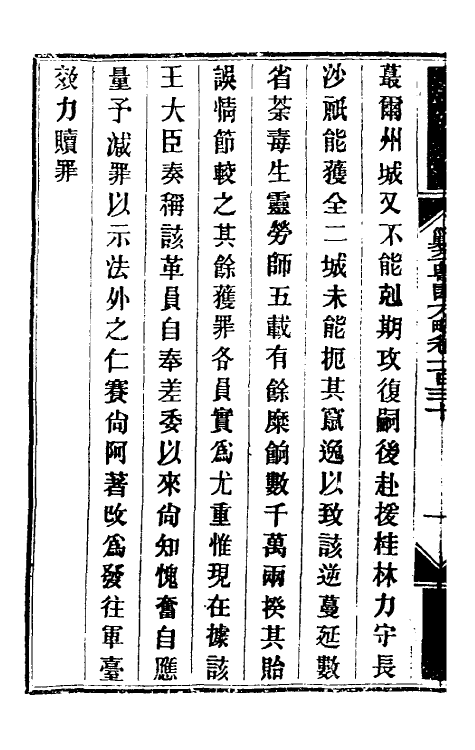 蕞爾州城又不能剋期攻復嗣後赴援桂林力守長
沙祇能獲全二城未能扼其竄逸以致該逆蔓延數
省荼毒生靈勞師五載有餘糜餉數千萬兩揆其貽
誤情節較之其餘獲罪各員實爲尤重惟現在據該
王大臣奏稱該革員自奉差委以來尙知愧奮自應
量予減罪以示法外之仁賽尙阿著改爲發往軍臺
效力贖罪